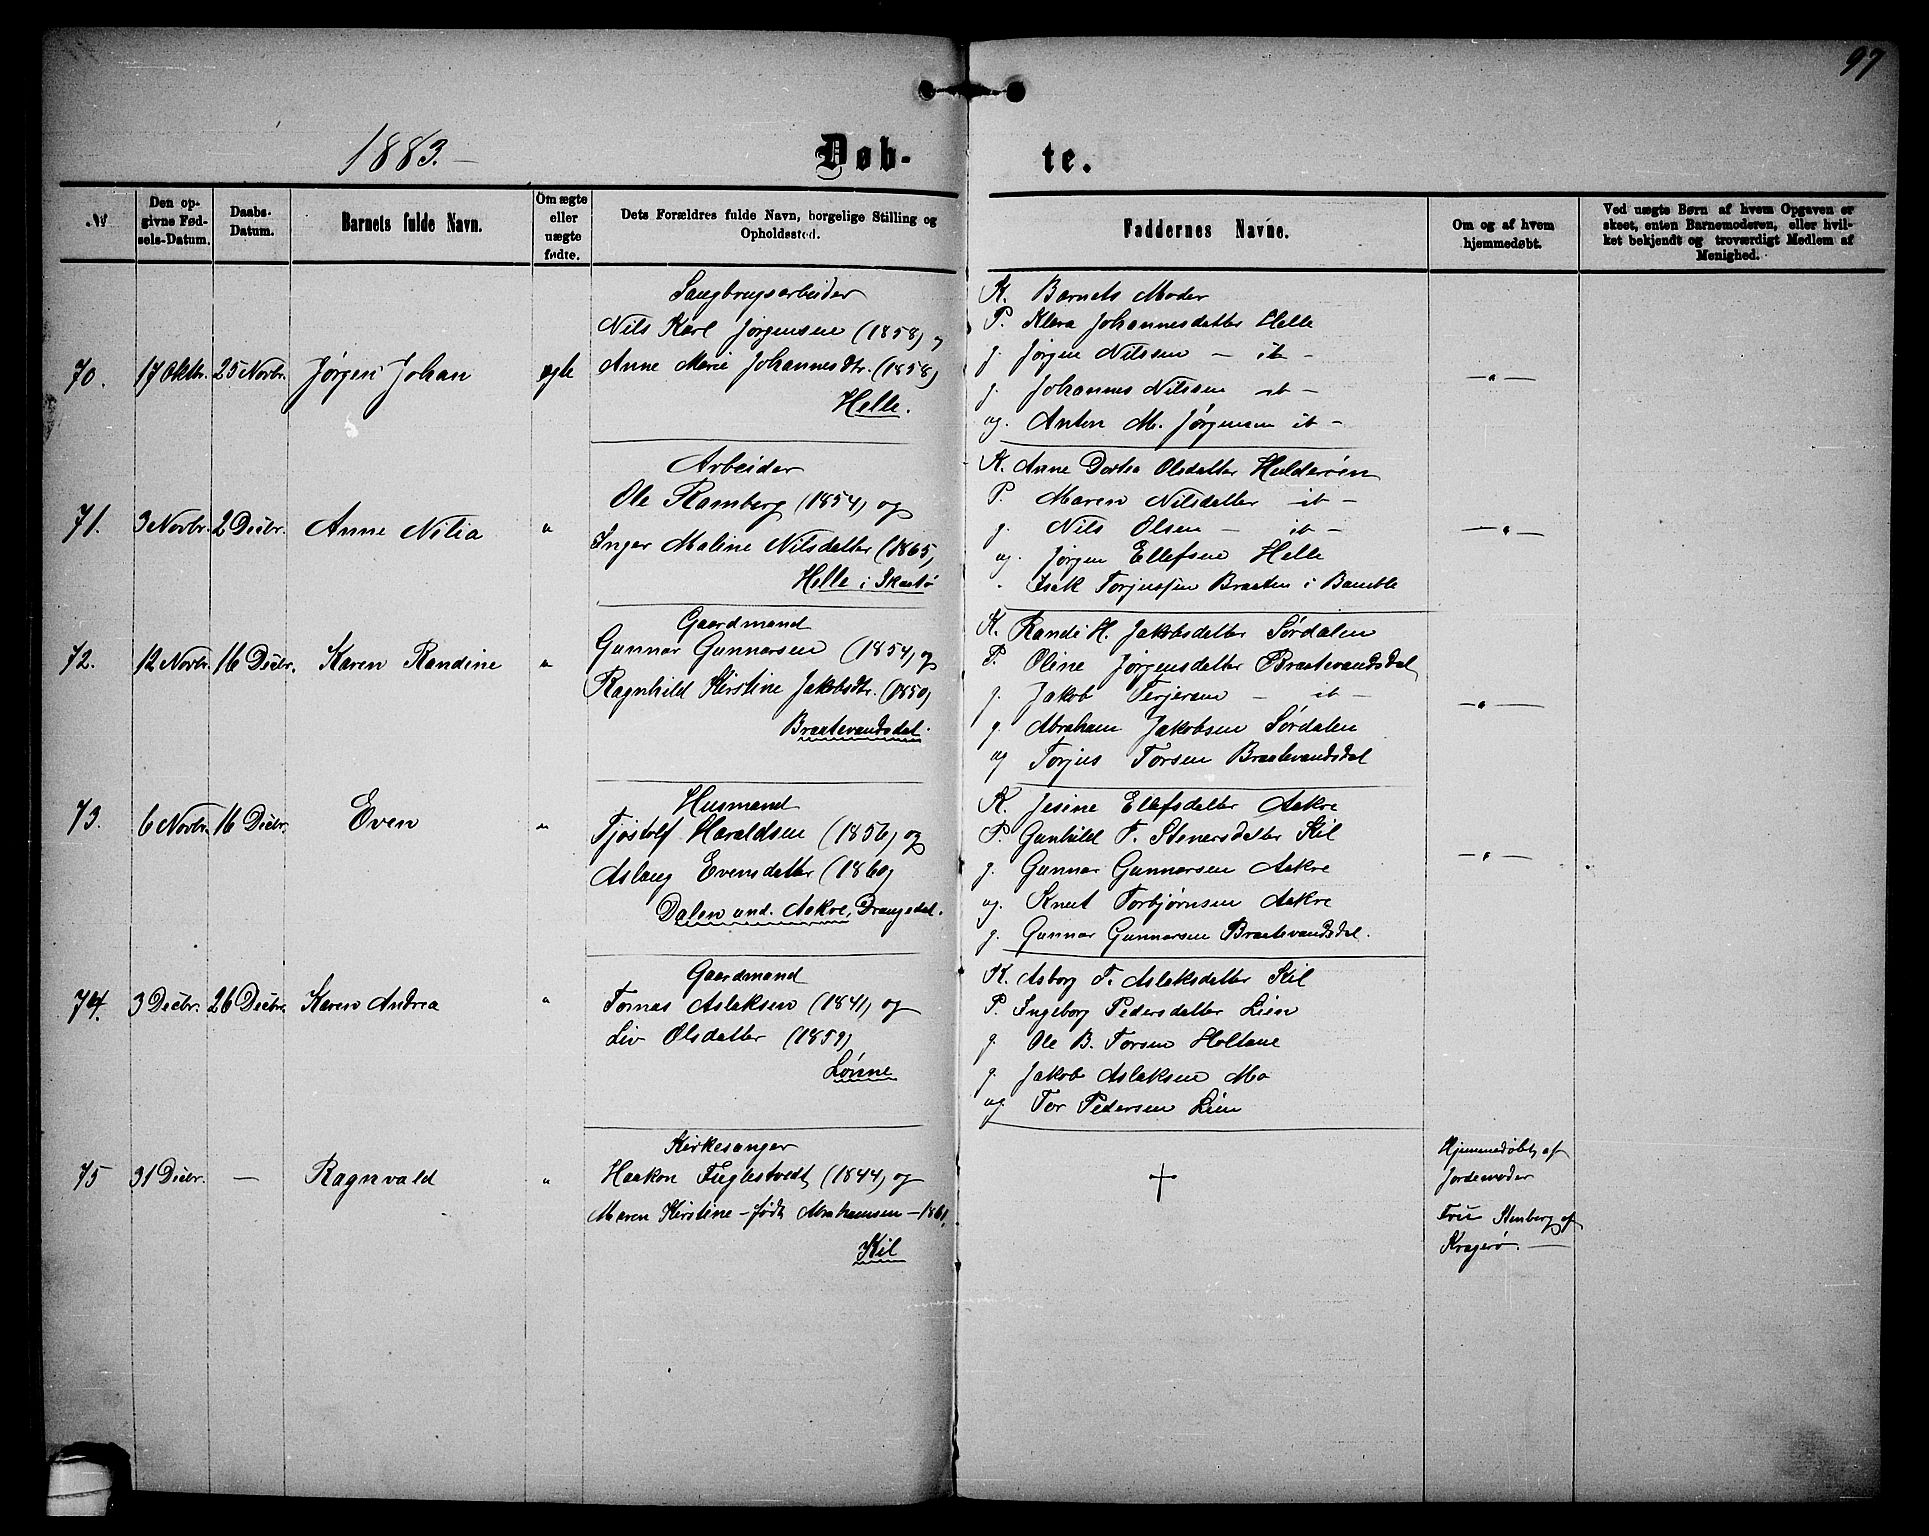 97
1883.
Døb-te.
№
Den opgivne Fødsels-Datum.
Daabs-Datum.
Barnets fulde Navn.
Om ægte eller uægte fødte.
Dets Forældres fulde Navn, borgelige Stilling og Opholdssted.
Faddernes Navne.
Om og af hvem hjemmedøbt.
Ved uægte Børn af hvem Opgaven er skeet, enten Barnemoderen, eller hvilket bekjendt og troværdigt Medlem af Menighed.
70. 17 Oktbr. 25 Novbr. Jørgen Johan ægte
Saugbrugsarbeider
Nils Karl Jørgensen (1858) og
Anne Marie Johannesdtr. (1858)
Helle.
K. Barnets Moder
P. Klara Johannesdatter Helle
g. Jørgen Nilssen — it —
g. Johannes Nilssen it —
og. Anton M. Jørgensen it —
— " —
71. 3 Novbr. 2 Decbr. Anne Nilia "
Arbeider
Ole Ramberg (1854) og
Inger Maline Nilsdatter (1865)
Helle i Skaatø
K. Anne Dortea Olsdatter Hulderøen
P. Maren Nilsdatter it —
g. Nils Olsen — it —
og. Jørgen Ellefsen Helle
" Isak Torjussen Braaten i Bamble
— " —
72. 12 Novbr. 16 Decbr. Karen Randine "
Gaardmand
Gunnar Gunnarsen (1854) og
Ragnhild Kirstine Jakobsdtr. (1850)
Braatevandsdal.
K. Randi H. Jakobsdatter Sørdalen
P. Oline Jørgensdatter Braatevandsdal
g. Jakob Terjersen — it —
g. Abraham Jakobsen Sørdalen
og Torjus Torsen Braatevandsdal
— " —
73. 6 Novbr. 16 Decbr. Even "
Husmand
Tjøstolf Haraldsen (1856) og
Aslaug Evensdatter (1860)
Dalen und. Aakre, Drangedal.
K. Jesine Ellefsdatter Aakre
P. Gunhild T. Stenersdatter Kil
g. Gunnar Gunnarsen Aakre
og. Knut Torbjørnsen Aakre
g. Gunnar Gunnarsen Braatevandsdal.
— " —
74. 3 Decbr. 26 Decbr. Karen Andrea "
Gaardmand
Tomas Aslaksen (1841) og
Liv Olsdatter (1859)
Lønne
K. Asborg T. Aslaksdatter Kil
P. Ingeborg Pedersdatter Lien
g. Ole B. Torsen Holtane
g. Jakob Aslaksen Mo
og Tor Pedersen Lien
75 31 Decbr. — Ragnvald "
Kirkesanger
Haakon Fuglestvedt (1844) og
Maren Kirstine – født Abrahamsen – 1861,
Kil
†
Hjemmedøbt af
Jordemoder
Fru Stenberg af
Kragerø. —